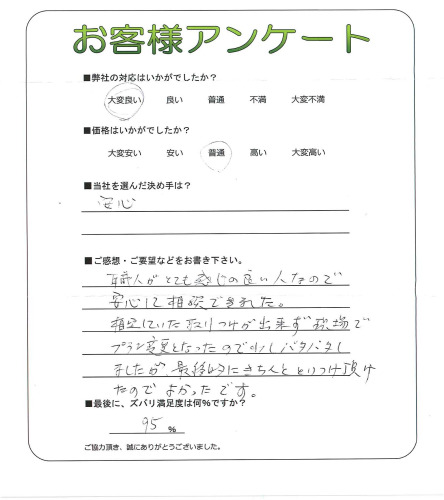 お客様アンケート
■弊社の対応はいかがでしたか？
大変良い 良い 普通 不満 大変不満
■価格はいかがでしたか？
大変安い 安い 普通 高い 大変高い
■当社を選んだ決め手は？
安心
■ご感想・ご要望などをお書き下さい。
職人がとても感じの良い人なので
安心して相談できました。
想定していた取りつけが出来ず現場で
プラン変更となったので少しバタバタし
ましたが最後的にきちんととりつけ頂け
たのでよかったです。
■最後に、ズバリ満足度は何％ですか？
95 %
ご協力頂き、誠にありがとうございました。